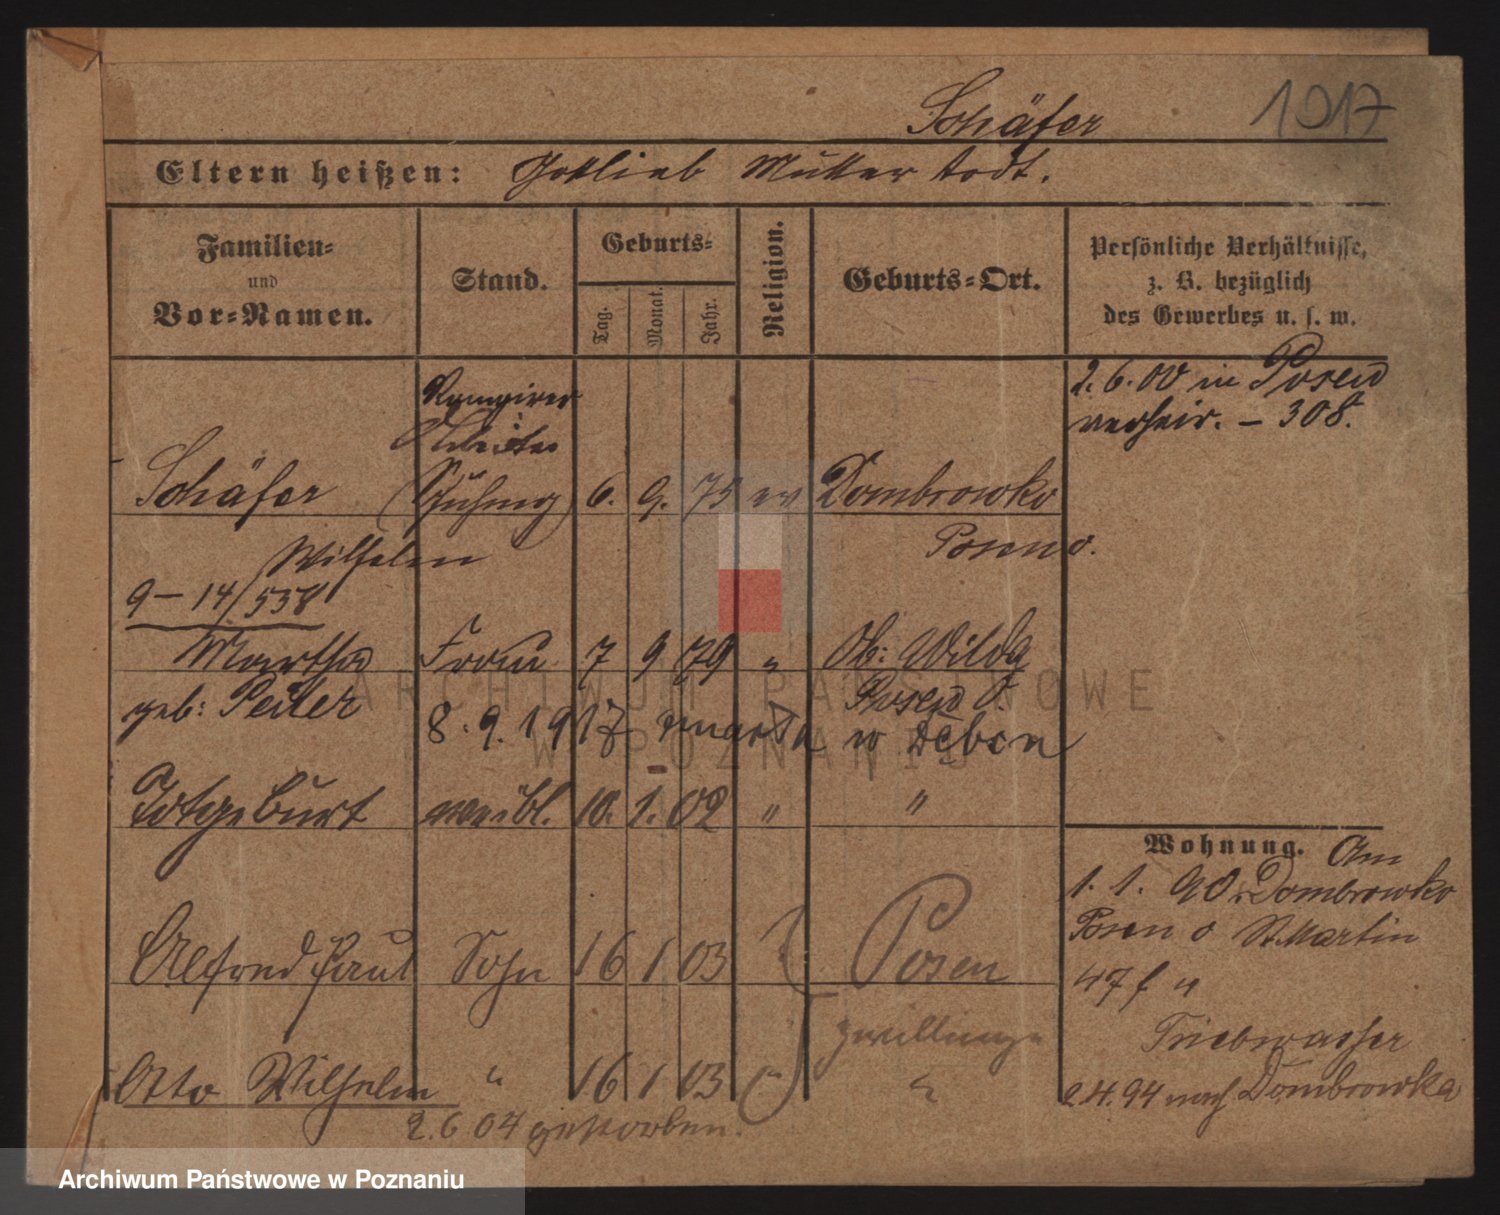 Schäfer 1917
Eltern heißen: Gottlieb Mutter todt.
Familien-
und
Vor-Namen.
Stand.
Geburts-
Tag.
Monat.
Jahr.
Religion.
Geburts-Ort.
Persönliche Verhältnisse,
z. B. bezüglich
des Gewerbes u. s. w.
2. 6. 00 in Posen
verheir. - 308.
Arbeiter
Schäfer 6. 9. 75 ev Dombrowko
Wilhelm Posen o.
9-14/538
Martha Frau 7 9 79 " Ob: Wilda
geb: Peiler Posen O.
8. 9. 1917 zmarła w Dębsen
Totgeburt weibl. 10. 1. 02 " "
Alfred Paul Sohn 16 1 03 Posen
Zwillinge
Otto Wilhelm " 16 1 03 " "
2. 6 04 gestorben.
Wohnung. Am
1. 1. 90 Dombrowko
Posen o St. Martin
47 f "
Triebwasser
2.4.94 nach Dombrowka
ARCHIWUM PAŃSTWOWE
W POZNANIU
Archiwum Państwowe w Poznaniu